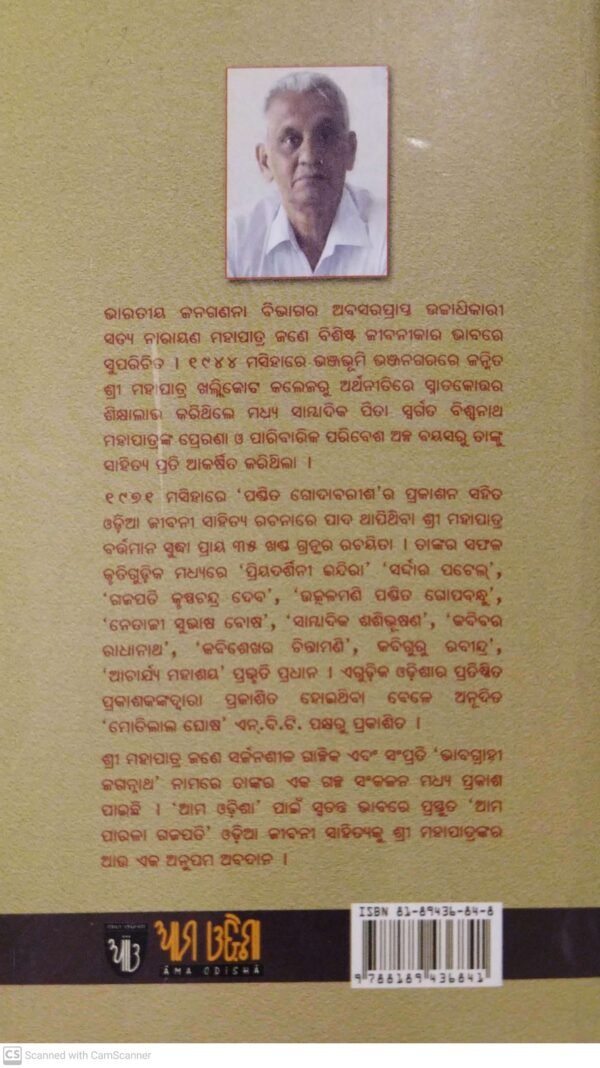 ଭାରତୀୟ ଜନଗଣନା ବିଭାଗର ଅବସରପ୍ରାପ୍ତ ଉଚ୍ଚାଧିକାରୀ
ସତ୍ୟ ନାରାୟଣ ମହାପାତ୍ର ଜଣେ ବିଶିଷ୍ଟ ଜୀବନୀକାର ଭାବରେ
ସୁପରିଚିତ । ୧୯୪୪ ମସିହାରେ ଭଞ୍ଜଭୂମି ଭଞ୍ଜନଗରରେ ଜନ୍ମିତ
ଶ୍ରୀ ମହାପାତ୍ର ଖଲ୍ଲିକୋଟ କଲେଜରୁ ଅର୍ଥନୀତିରେ ସ୍ନାତକୋତ୍ତର
ଶିକ୍ଷାଲାଭ କରିଥିଲେ ମଧ୍ୟ ସାମ୍ବାଦିକ ପିତା ସ୍ୱର୍ଗତ ବିଶ୍ୱନାଥ
ମହାପାତ୍ରଙ୍କ ପ୍ରେରଣା ଓ ପାରିବାରିକ ପରିବେଶ ଅଳ୍ପ ବୟସରୁ ତାଙ୍କୁ
ସାହିତ୍ୟ ପ୍ରତି ଆକର୍ଷିତ କରିଥିଲା ।
୧୯୭୧ ମସିହାରେ ‘ପଣ୍ଡିତ ଗୋଦାବରୀଶ’ର ପ୍ରକାଶନ ସହିତ
ଓଡ଼ିଆ ଜୀବନୀ ସାହିତ୍ୟ ରଚନାରେ ପାଦ ଥାପିଥିବା ଶ୍ରୀ ମହାପାତ୍ର
ବର୍ତ୍ତମାନ ସୁଦ୍ଧା ପ୍ରାୟ ୩୫ ଖଣ୍ଡ ଗ୍ରନ୍ଥର ରଚୟିତା । ତାଙ୍କର ସଫଳ
କୃତିଗୁଡ଼ିକ ମଧ୍ୟରେ ‘ପ୍ରିୟଦର୍ଶିନୀ ଇନ୍ଦିରା’ ‘ସର୍ଦ୍ଦାର ପଟେଲ୍’,
‘ଗଜପତି କୃଷ୍ଣଚନ୍ଦ୍ର ଦେବ’, ‘ଉତ୍କଳମଣି ପଣ୍ଡିତ ଗୋପବନ୍ଧୁ’,
‘ନେତାଜୀ ସୁଭାଷ ବୋଷ’, ‘ସାମ୍ବାଦିକ ଶଶିଭୂଷଣ’, ‘କବିବର
ରାଧାନାଥ’, ‘କବିଶେଖର ଚିନ୍ତାମଣି’, କବିଗୁରୁ ରବୀନ୍ଦ୍ର’,
‘ଆଚାର୍ଯ୍ୟ ମହାଶୟ’ ପ୍ରଭୃତି ପ୍ରଧାନ । ଏଗୁଡ଼ିକ ଓଡ଼ିଶାର ପ୍ରତିଷ୍ଠିତ
ପ୍ରକାଶକଙ୍କଦ୍ୱାରା ପ୍ରକାଶିତ ହୋଇଥିବା ବେଳେ ଅନୂଦିତ
‘ମୋତିଲାଲ ଘୋଷ’ ଏନ୍.ବି.ଟି. ପକ୍ଷରୁ ପ୍ରକାଶିତ ।
ଶ୍ରୀ ମହାପାତ୍ର ଜଣେ ସର୍ଜନଶୀଳ ଗାଳ୍ପିକ ଏବଂ ସଂପ୍ରତି ‘ଭାବଗ୍ରାହୀ
ଜଗନ୍ନାଥ’ ନାମରେ ତାଙ୍କର ଏକ ଗଳ୍ପ ସଂକଳନ ମଧ୍ୟ ପ୍ରକାଶ
ପାଇଛି । ‘ଆମ ଓଡ଼ିଶା’ ପାଇଁ ସ୍ୱତନ୍ତ୍ର ଭାବରେ ପ୍ରସ୍ତୁତ ‘ଆମ
ପାରଳା ଗଜପତି’ ଓଡ଼ିଆ ଜୀବନୀ ସାହିତ୍ୟକୁ ଶ୍ରୀ ମହାପାତ୍ରଙ୍କର
ଆଉ ଏକ ଅନୁପମ ଅବଦାନ ।
ISBN 81-89436-84-8
ଆମ ଓଡ଼ିଶା
ĀMA ODISHĀ
9 788189 436841
CS Scanned with CamScanner